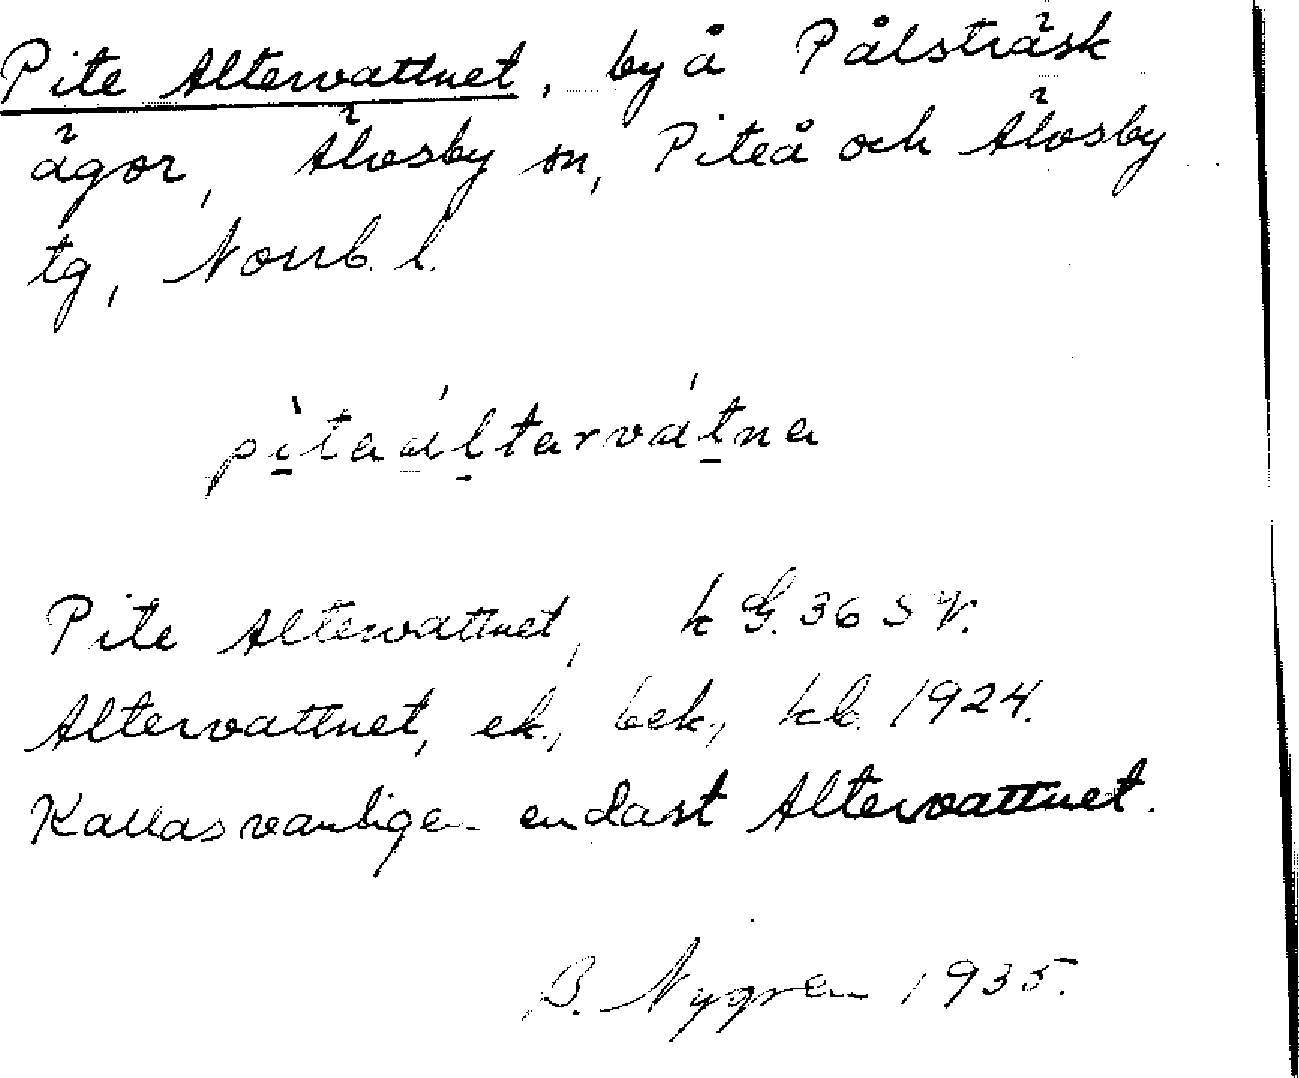 Pite Altervattnet, by å Pålsträsk
ägor, Älvsby sn, Piteå och Älvsby
tg, Norrb. l.
pìtaáltarvátna
Pite Altervattnet, k G. 36 S V.
Altervattnet, ek., bek., kb. 1924.
Kallas vanligen endast Altervattnet.
B. Nygren 1935.